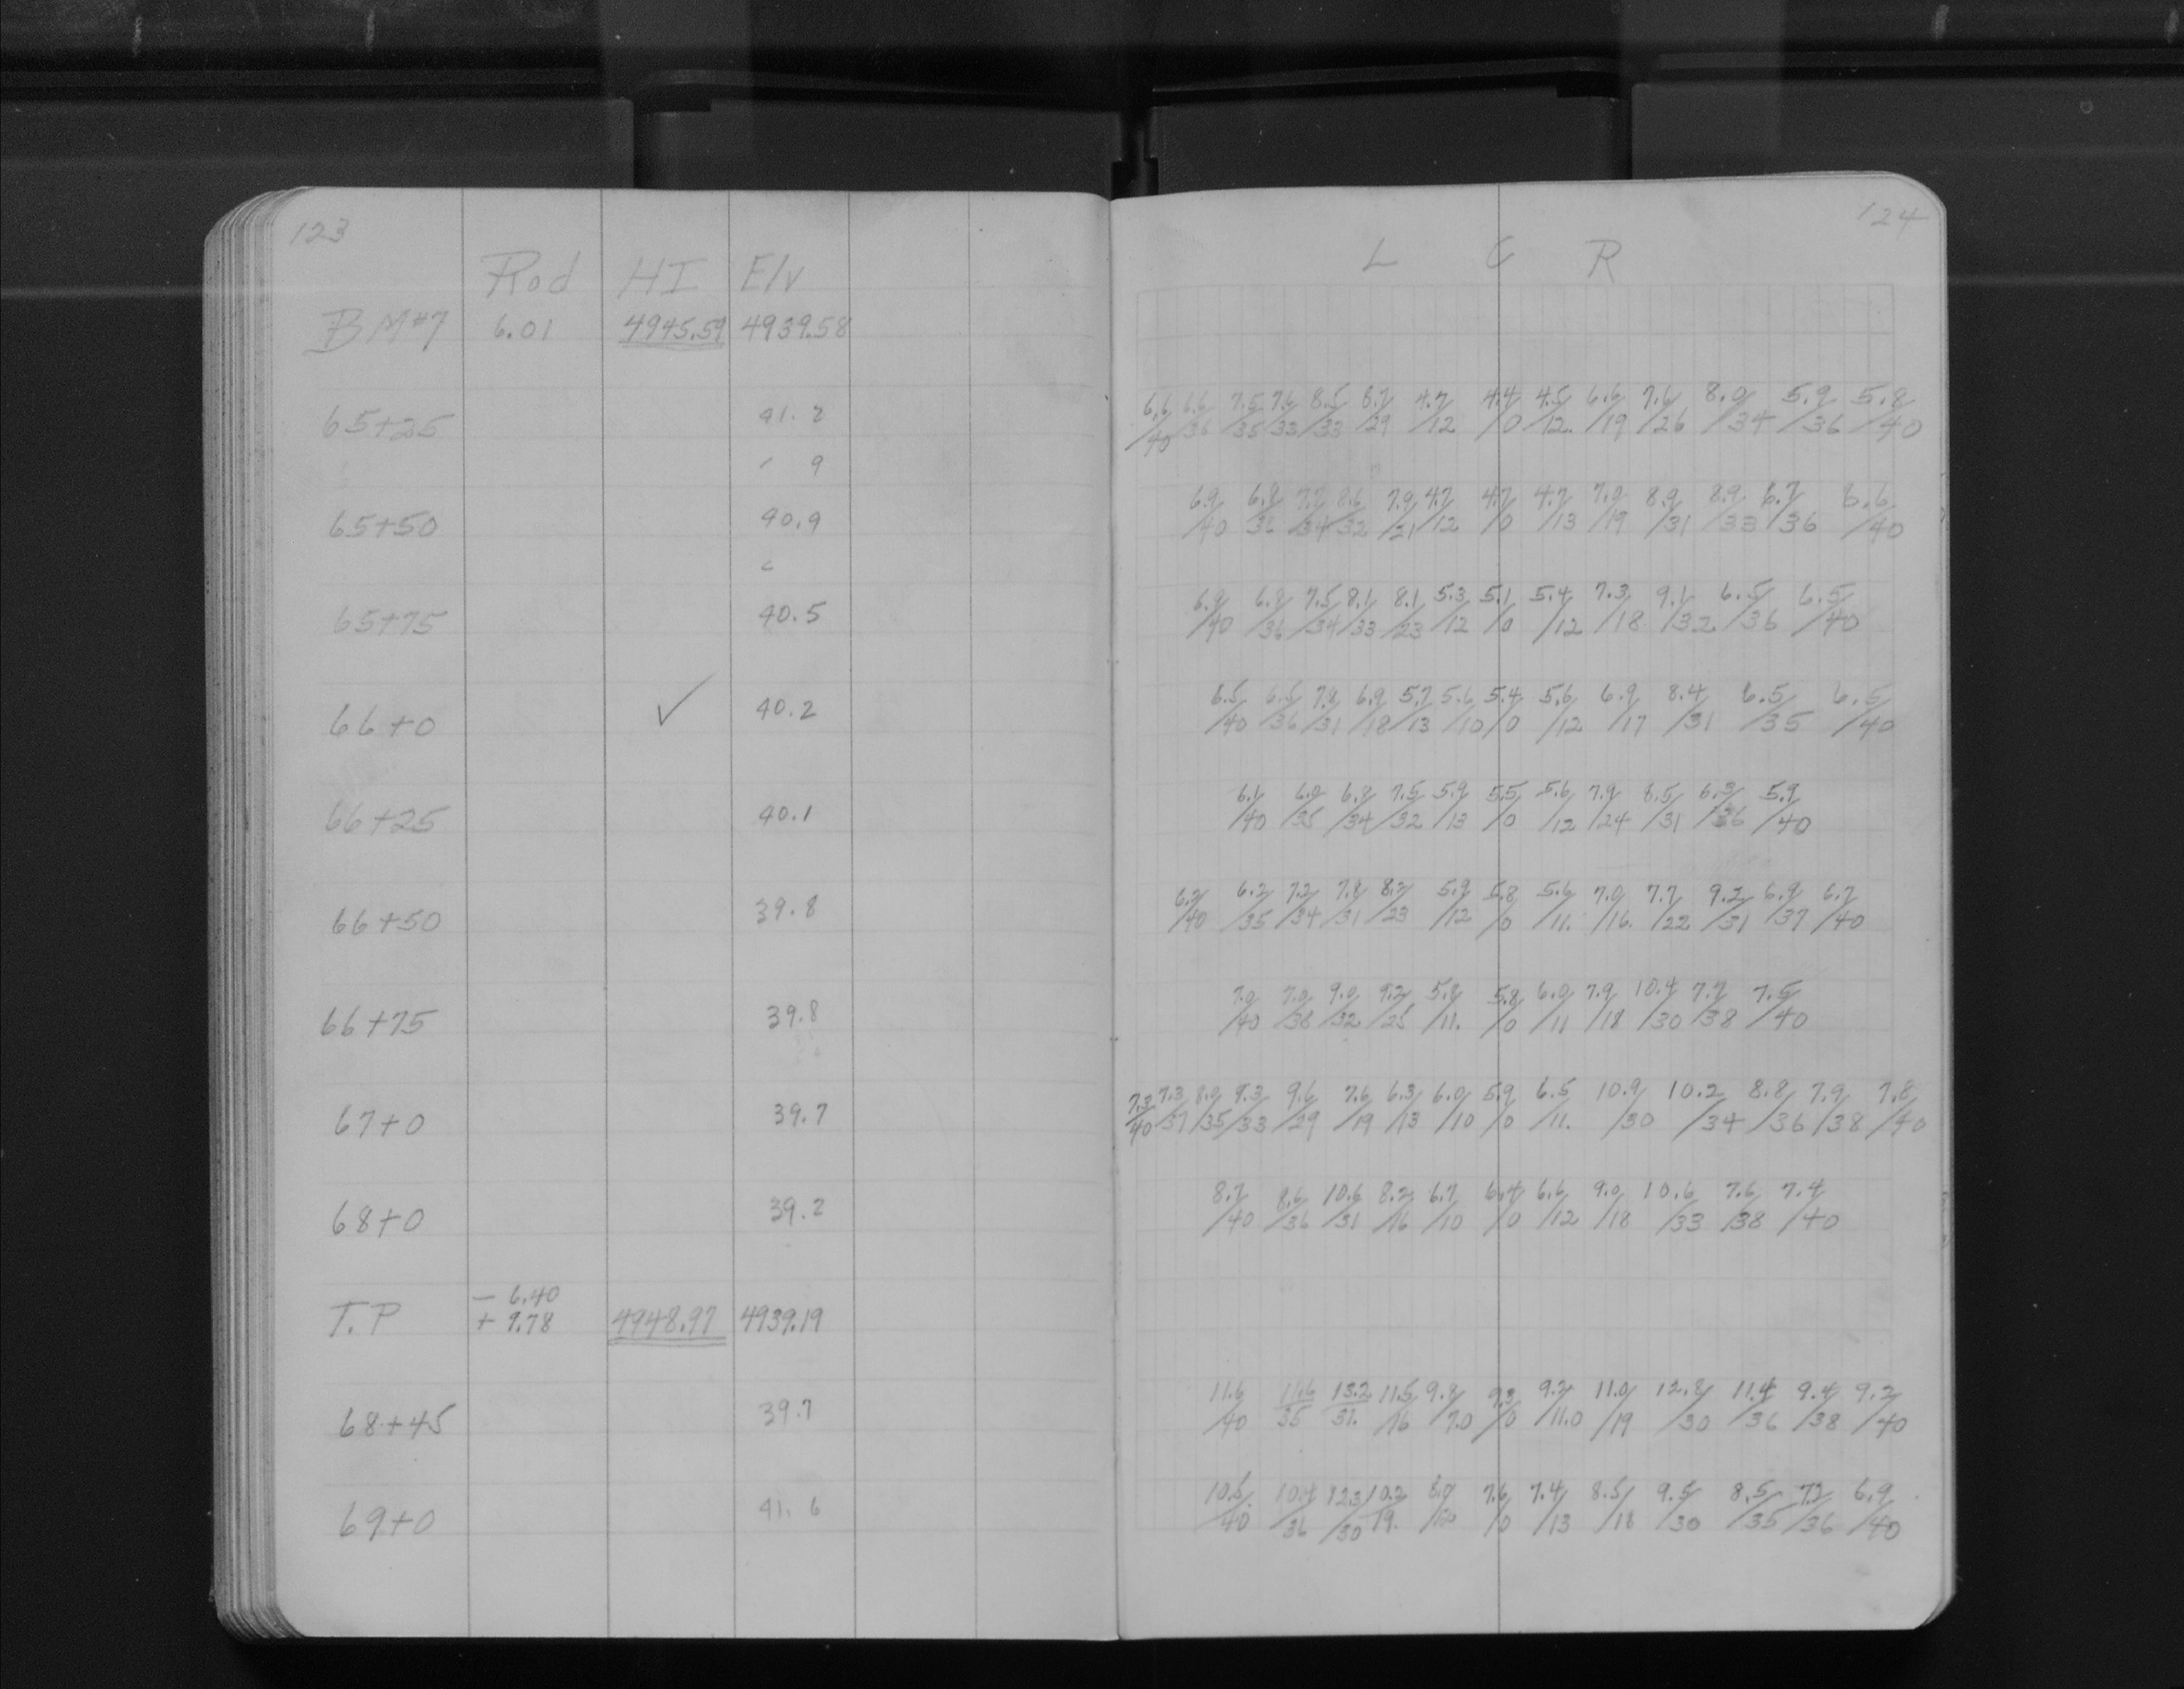 123
Rod HI Elv
BM#7 6.01 4945.59 4939.58
65+25 41.2
9
65+50 40.9
65+75 40.5
66+0 ✓ 40.2
66+25 40.1
66+50 39.8
66+75 39.8
67+0 39.7
68+0 39.2
- 6.40
T.P + 9.78 4948.97 4939.19
68+45 39.7
69+0 41.6
124
L C R
6.6/40 6.6/36 7.5/35 7.6/33 8.5/33 8.7/29 4.7/12 4.4/0 4.5/12 6.6/19 7.6/26 8.0/34 5.9/36 5.8/40
6.9/40 6.9/36 7.7/34 8.6/32 7.9/21 4.7/12 4.7/0 4.7/13 7.0/19 8.9/31 8.9/33 6.7/36 6.6/40
6.9/40 6.9/36 7.5/34 8.1/33 8.1/23 5.3/12 5.1/0 5.4/12 7.3/18 9.1/32 6.5/36 6.5/40
6.5/40 6.5/36 7.8/31 6.9/18 5.7/13 5.6/10 5.4/0 5.6/12 6.9/17 8.4/31 6.5/35 6.5/40
6.1/40 6.0/35 6.8/34 7.5/32 5.9/13 5.5/0 5.6/12 7.9/24 8.5/31 6.3/36 5.9/40
6.2/40 6.2/35 7.2/34 7.8/31 8.2/23 5.9/12 5.8/0 5.6/11. 7.0/16. 7.7/22 9.2/31 6.9/37 6.7/40
7.0/40 7.0/38 9.0/32 9.2/25 5.8/11. 5.8/0 6.0/11 7.9/18 10.4/30 7.7/38 7.5/40
7.3/40 7.3/37 8.0/35 9.3/33 9.6/29 7.6/19 6.3/13 6.0/10 5.9/0 6.5/11. 10.9/30 10.2/34 8.8/36 7.9/38 7.8/40
8.7/40 8.6/36 10.6/31 8.2/16 6.7/10 6.4/0 6.6/12 9.0/18 10.6/33 7.6/38 7.4/40
11.6/40 11.6/35 13.2/31. 11.5/16 9.8/7.0 9.3/0 9.2/11.0 11.0/19 12.8/30 11.4/36 9.4/38 9.2/40
10.5/40 10.4/36 12.3/30 10.2/19. 8.0/12 7.6/0 7.4/13 8.5/18 9.5/30 8.5/35 7.2/36 6.9/40